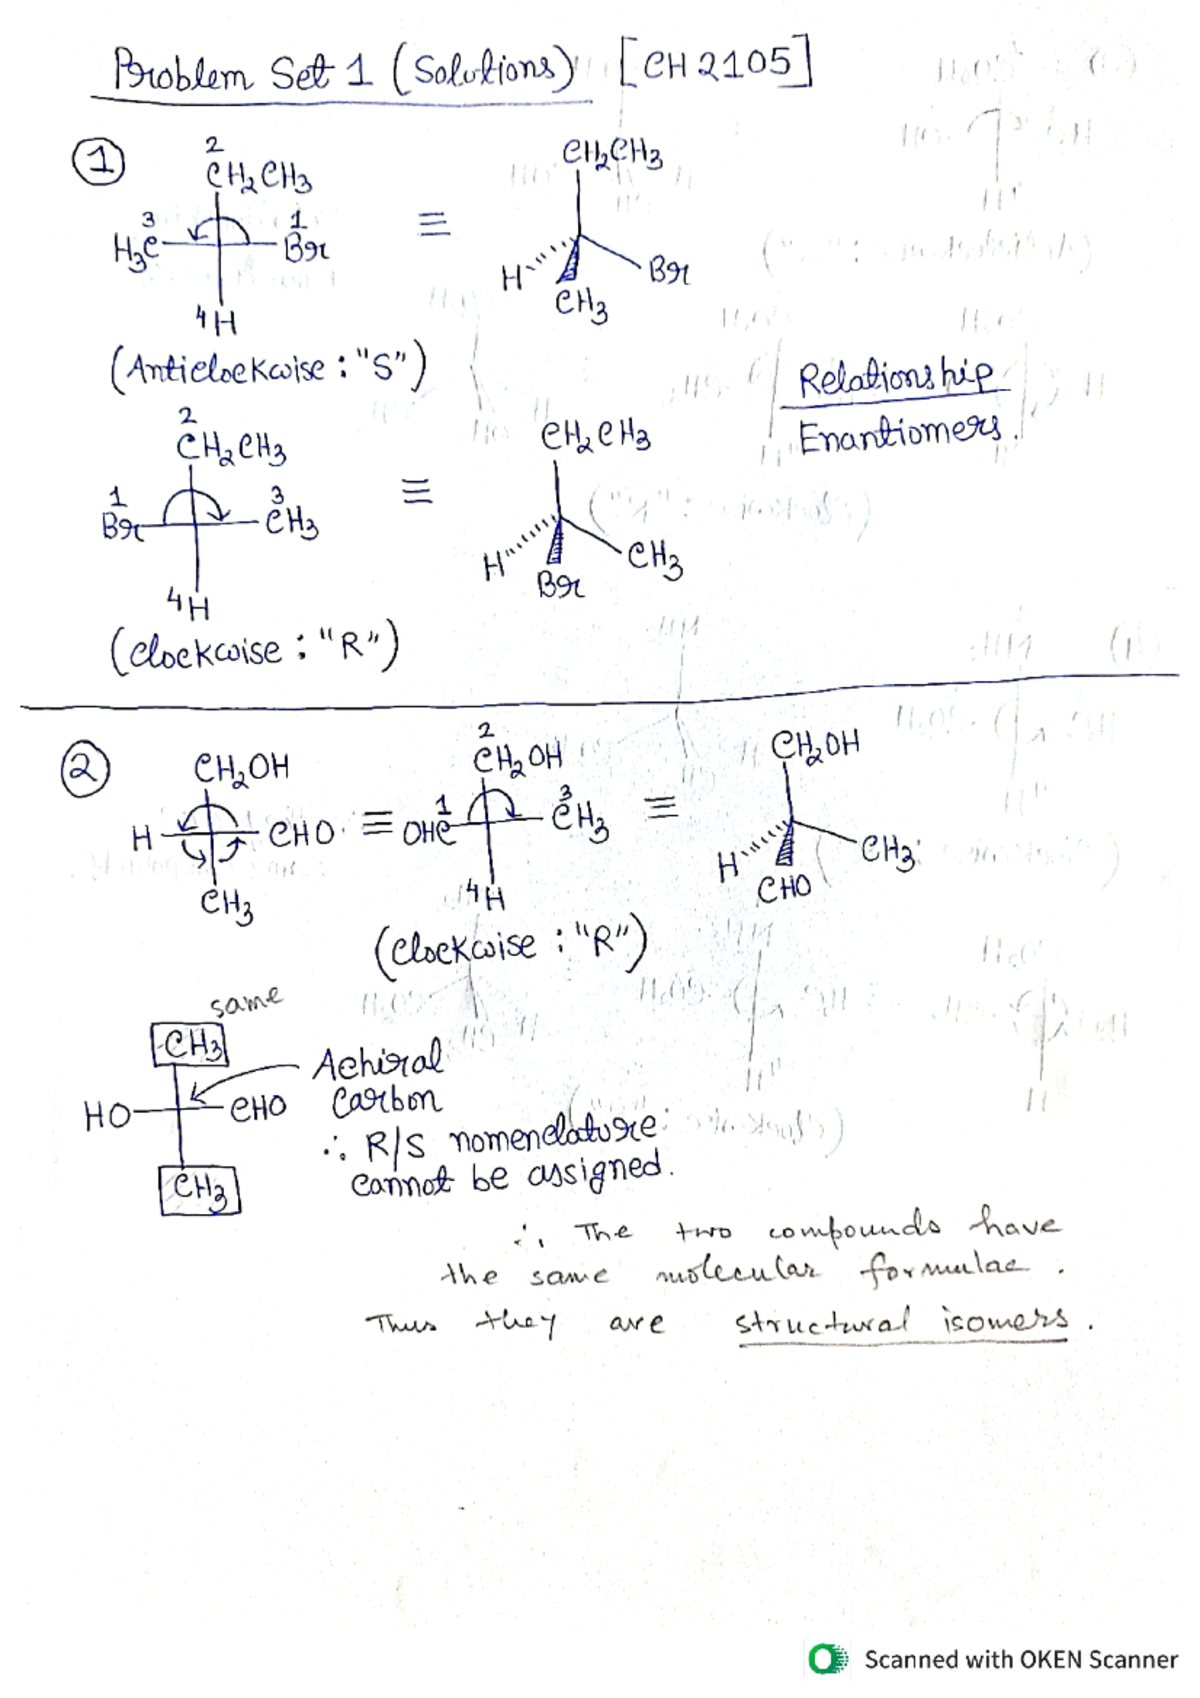 Problem Set 1 (Solutions) [CH 2105]
1
2
CH2CH3
3
H3C
1
Br
4H
≡
CH2CH3
H
CH3
Br
(Anticlockwise : "S")
Relationship
Enantiomers.
2
CH2CH3
1
Br
3
CH3
4H
≡
CH2CH3
H
Br
CH3
(Clockwise : "R")
2
CH2OH
H
CHO
CH3
≡
2
CH2OH
1
OHC
3
CH3
4H
≡
CH2OH
H
CHO
CH3
(Clockwise : "R")
same
CH3
HO
CHO
CH3
Achiral
Carbon
∴ R/S nomenclature
cannot be assigned.
∴ The two compounds have
the same molecular formulae.
Thus they are structural isomers.
Scanned with OKEN Scanner